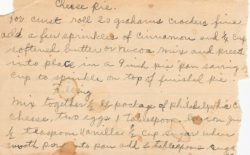 Cheese Pie.
For crust roll 20 grahams crackers fine
add a few sprinkles of cinnamon and ½ cup
softened butter or Nucoa mix and press
into place in a 9 inch pie pan saving
cup to sprinkle on top of finished pie.
Mix together package of Philadelphia
cheese, two eggs 1 Tablespoon
teaspoon Vanilla ½ cup sugar when
smooth pour into pan add